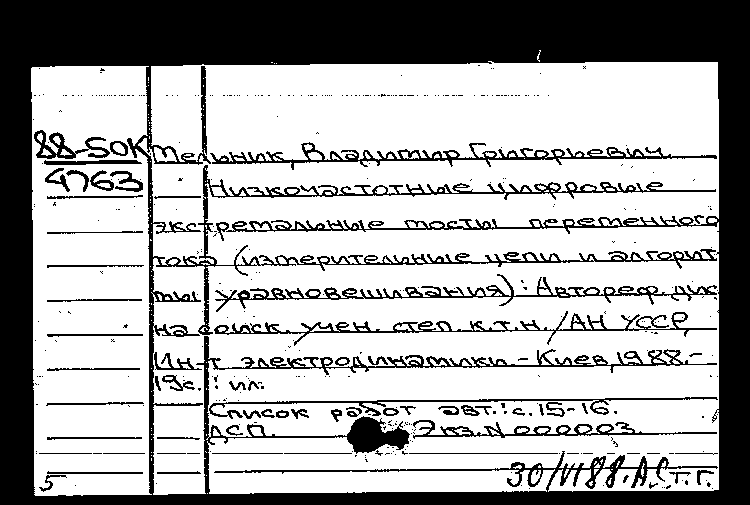 88-50К Мельник, Владимир Григорьевич.
4763 Низкочастотные цифровые
экстремальные мосты переменного
тока (измерительные цепи и алгорит
мы уравновешивания): Автореф. дис
на соиск. учен. степ. к.т.н. /АН УССР,
Ин-т электродинамики. - Киев, 1988.-
19с. : ил.
Список работ авт.: с. 15-16.
ДСП. Экз. N 000003.
5 30/VI 88.